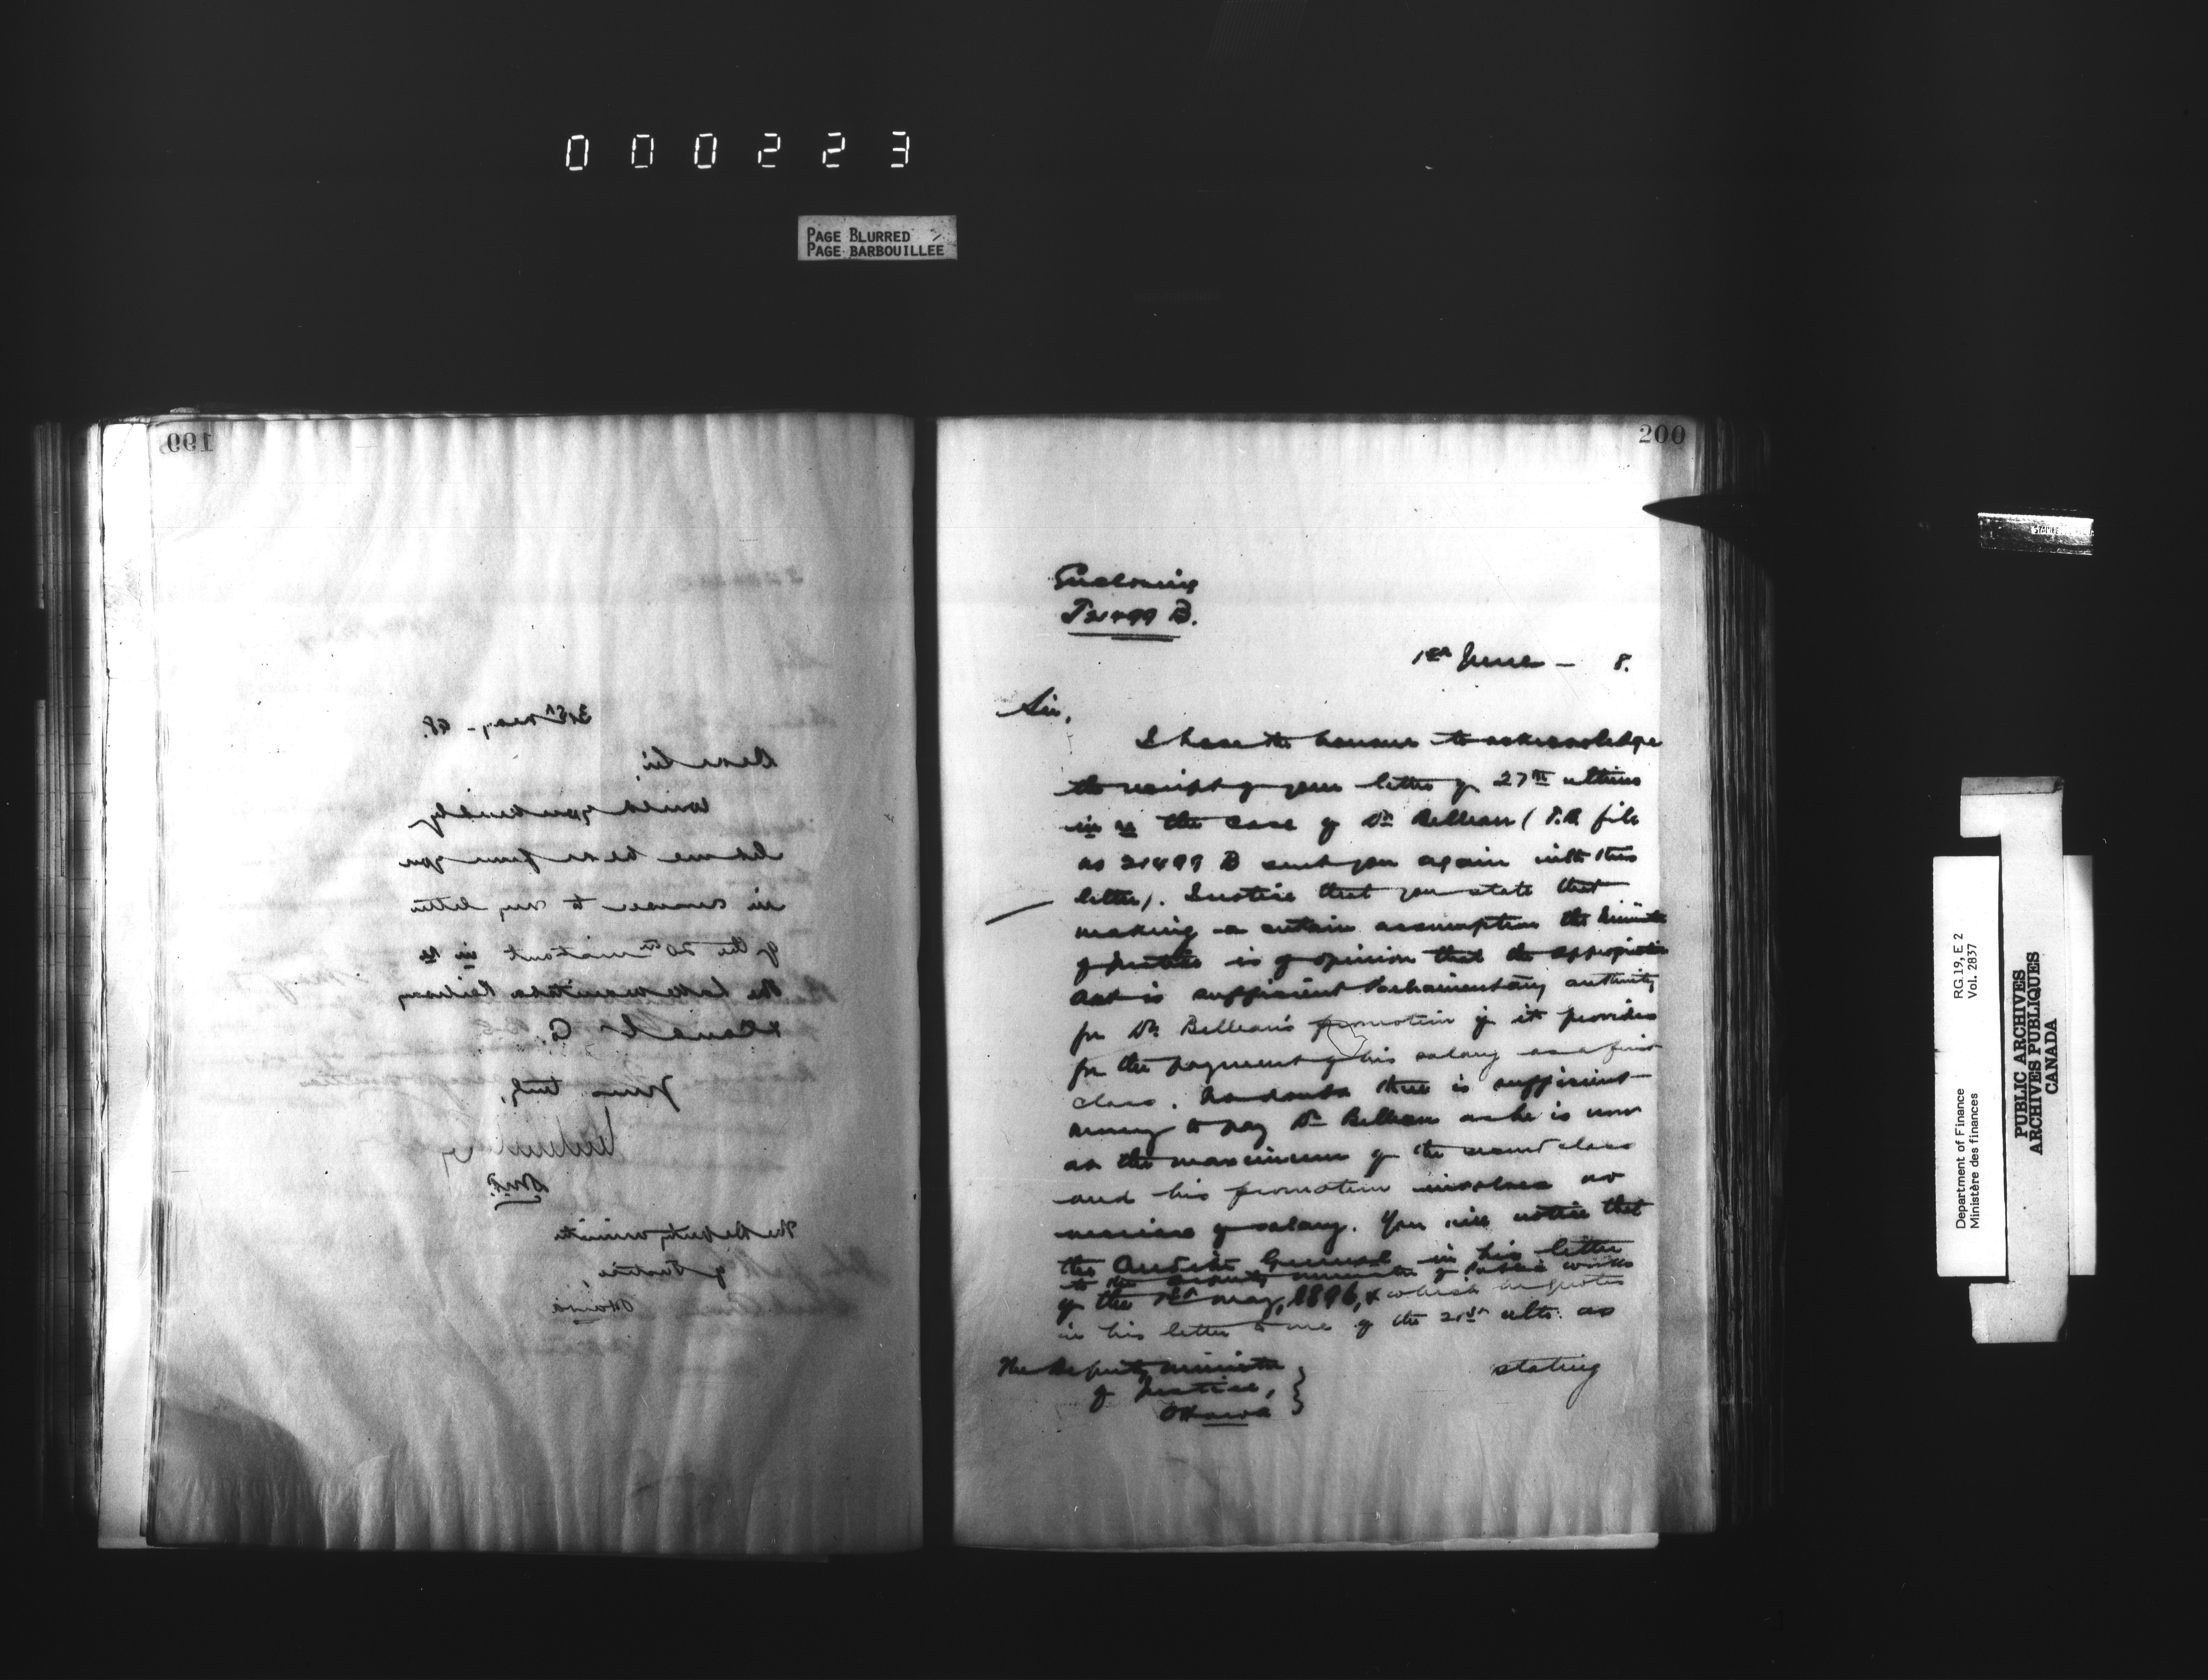 000223
PAGE BLURRED
PAGE BARBOUILLEE
199
31st May - 98.
Dear Sir,
Would you kindly
let me hear from you
in answer to my letter
of the 20th instant in re
the Lake Manitoba Railway
& Canal Co.
Yours truly,
D.M.F.
The Deputy Minister
of Justice,
Ottawa
200
Enclosing
21499 B.
1st June - 8.
Sir,
I have the honour to acknowledge
the receipt of your letter of 27th ultimo
in re the case of Dr. Belleau (file
no 21499 B sent you again with this
letter). I notice that you state that
making a certain assumption the Minister
of Justice is of opinion that the Appropriation
Act is sufficient Parliamentary authority
for Dr. Belleau's promotion if it provides
for the payment of his salary as a first
class. No doubt there is sufficient
money to pay Dr. Belleau as he is now
at the maximum of the second class
and his promotion involves no
increase of salary. You will notice that
the Auditor General in his letter
to the Deputy Minister of Public Works
of the 1st May, 1896, & which he quotes
in his letter to me of the 21st ulto. as
stating
The Deputy Minister
of Justice,
Ottawa
Department of Finance
Ministère des finances
RG 19, E 2
Vol. 2837
PUBLIC ARCHIVES
ARCHIVES PUBLIQUES
CANADA